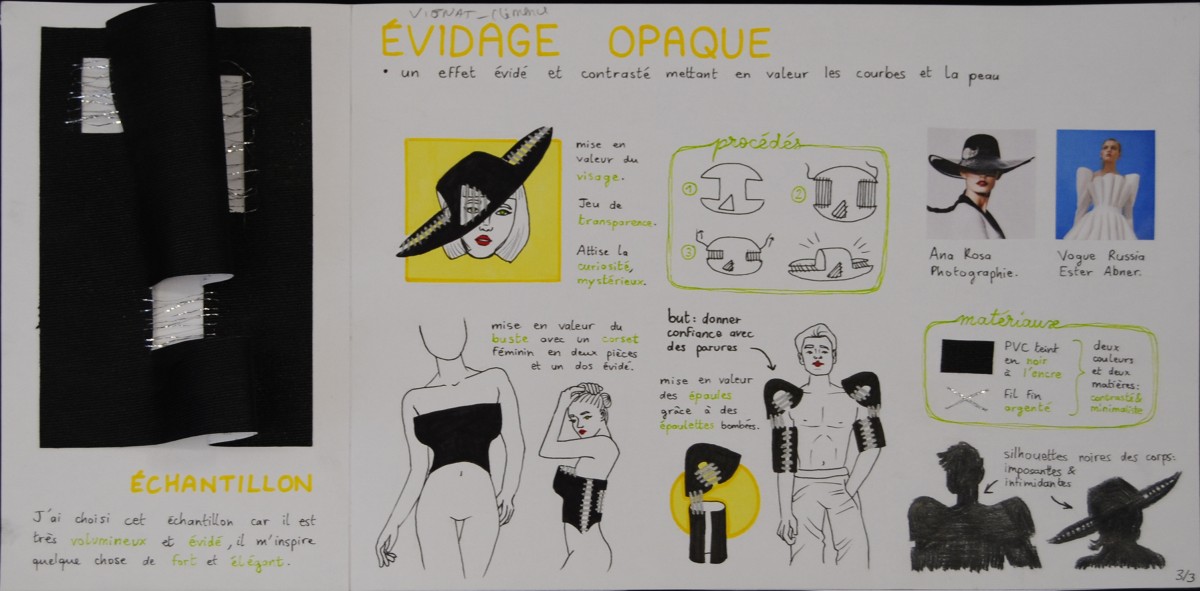 VIGNAT_Clémence
ÉVIDAGE OPAQUE
• un effet évidé et contrasté mettant en valeur les courbes et la peau
mise en
valeur du
visage.
Jeu de
transparence.
Attise la
curiosité,
mystérieux.
procédés
1
2
3
Ana Rosa
Photographie.
Vogue Russia
Ester Abner.
mise en valeur du
buste avec un corset
féminin en deux pièces
et un dos évidé.
but: donner
confiance avec
des parures
mise en valeur
des épaules
grâce à des
épaulettes bombées.
matériaux
PVC teint
en noir
à l'encre
Fil Fin
argenté
deux
couleurs
et deux
matières:
contrasté &
minimaliste
silhouettes noires des corps:
imposantes &
intimidantes
ÉCHANTILLON
J'ai choisi cet échantillon car il est
très volumineux et évidé, il m'inspire
quelque chose de fort et élégant.
3/3